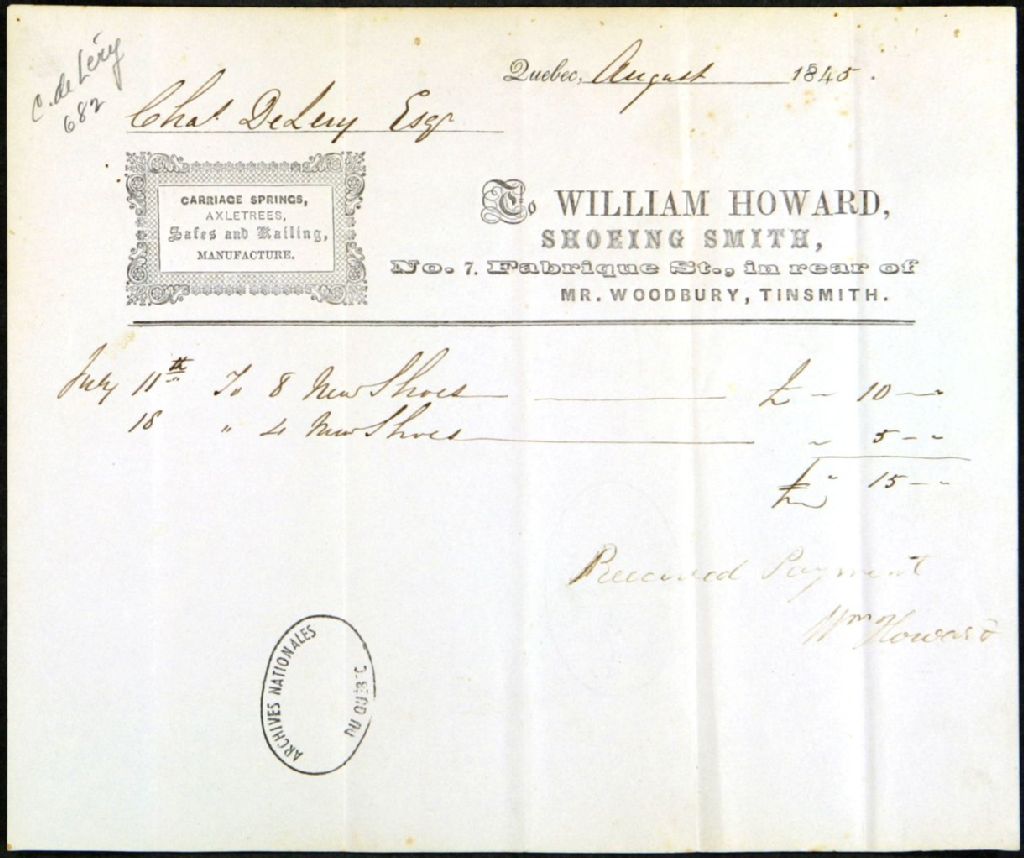 C. de Léry
682
Quebec, August 1845.
Chas DeLery Esqr
CARRIAGE SPRINGS,
AXLETREES,
Safes and Railing,
MANUFACTURE.
To WILLIAM HOWARD,
SHOEING SMITH,
No. 7. Fabrique St., in rear of
MR. WOODBURY, TINSMITH.
July 11th To 8 New Shoes £ " 10 - "
18 " 4 New Shoes " 5 - "
£ " 15 - "
Received Payment
Wm Howard
ARCHIVES NATIONALES
DU QUÉBEC